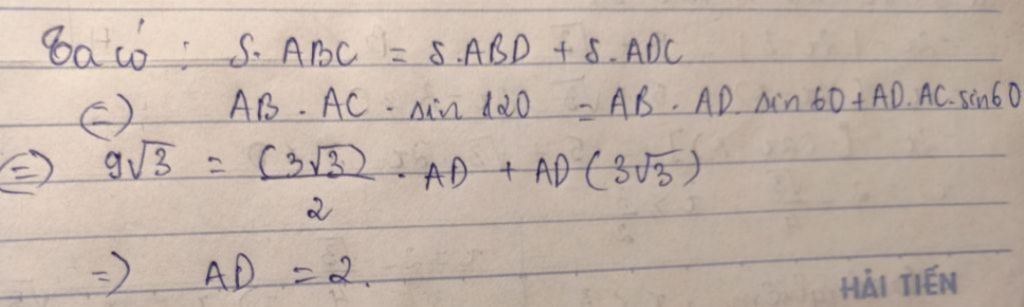 Ta có : S.ABC = S.ABD + S.ADC
(=) AB . AC . sin 120 = AB . AD . sin 60 + AD . AC . sin 60
(=) 9√3 = (3√3)/2 . AD + AD (3√3)
=) AD = 2.
HẢI TIẾN